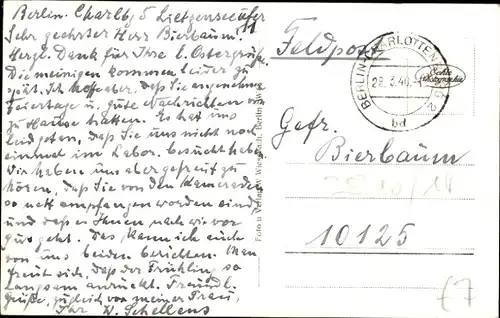 Berlin. Charlbg 5 Lietzenseeufer
Sehr geehrter Herr Bierbaum!
Herzl. Dank für Ihre l. Ostergrüße.
Die meinigen kommen leider zu
spät. Ich hoffe aber, daß Sie angenehme
Feiertage u. gute Nachrichten von
zu Hause hatten. Es hat uns
leid getan, daß Sie uns nicht noch
einmal im Labor. besucht haben
Wir haben uns aber gefreut zu
hören, daß Sie von den Kameraden
so nett empfangen worden sind
und daß es Ihnen nach wie vor
gut geht. Das kann ich auch
von uns beiden berichten. Man
freut sich, daß der Frühling so
langsam anrückt. Freundl.
Grüße, zugleich von meiner Frau,
Ihr W. Schellens
Foto u. Verlag Berlin
Feldpost
BERLIN-CHARLOTTENBURG 2
28.3.40.
bd
Echte Photographie
Gefr.
Bierbaum
10125